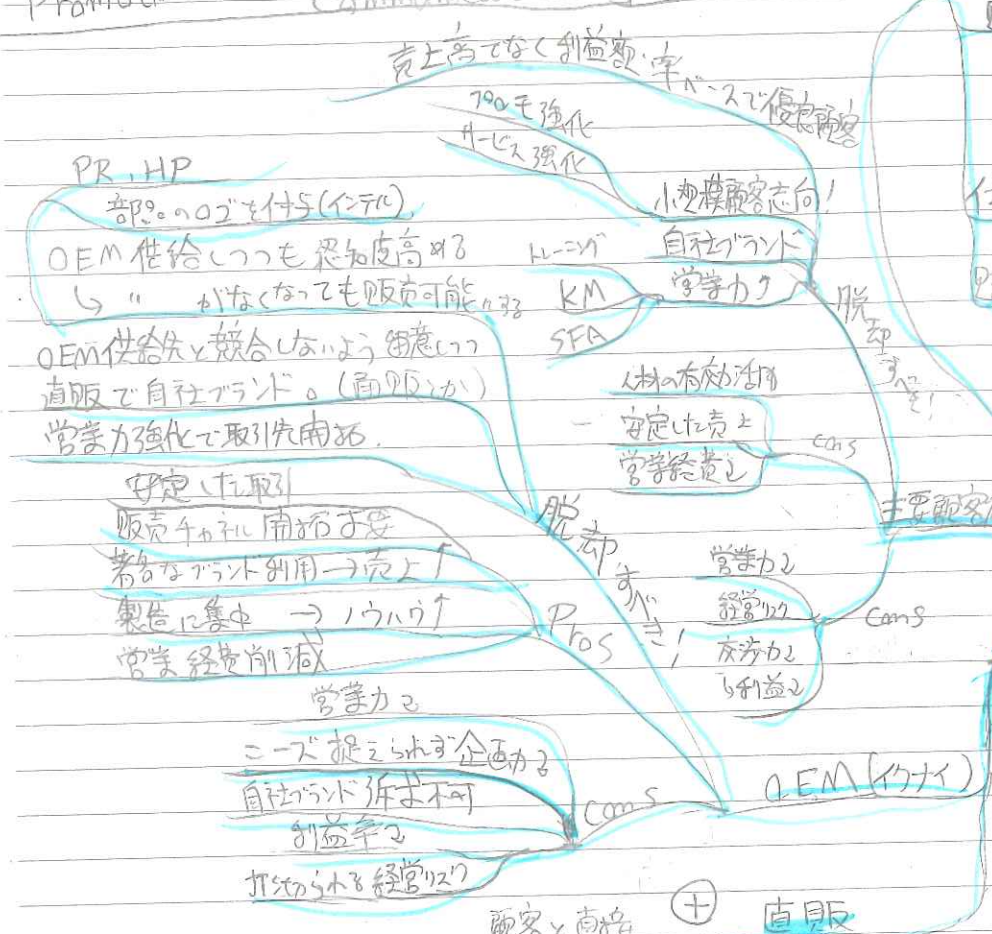 売上高でなく利益額・率ベースで優良顧客
プロモ強化
サービス強化
小規模顧客志向!
自社ブランド
営業力↑
トレーニング
KM
SFA
脱却すべき!
PR, HP
部品のロゴを付与(インテル)
OEM供給しつつも認知度高める
↳ 〃 がなくなっても販売可能にする
OEM供給先と競合しないよう留意しつつ
直販で自社ブランド。(直販とか)
営業力強化で取引先開拓.
人材の有効活用
安定した売上
営業経費↓
cons
主要顧客
営業力↓
経営リスク
交渉力↓
↳利益↓
cons
脱却すべき!
安定した取引
販売チャネル開拓不要
著名なブランド利用→売上↑
製造に集中 → ノウハウ↑
営業経費削減
Pros
営業力↓
ニーズ捉えられず企画力↓
自社ブランド訴求不可
利益率↓
打ち切られる経営リスク
cons
OEM(イクナイ)
顧客と直接
+
直販